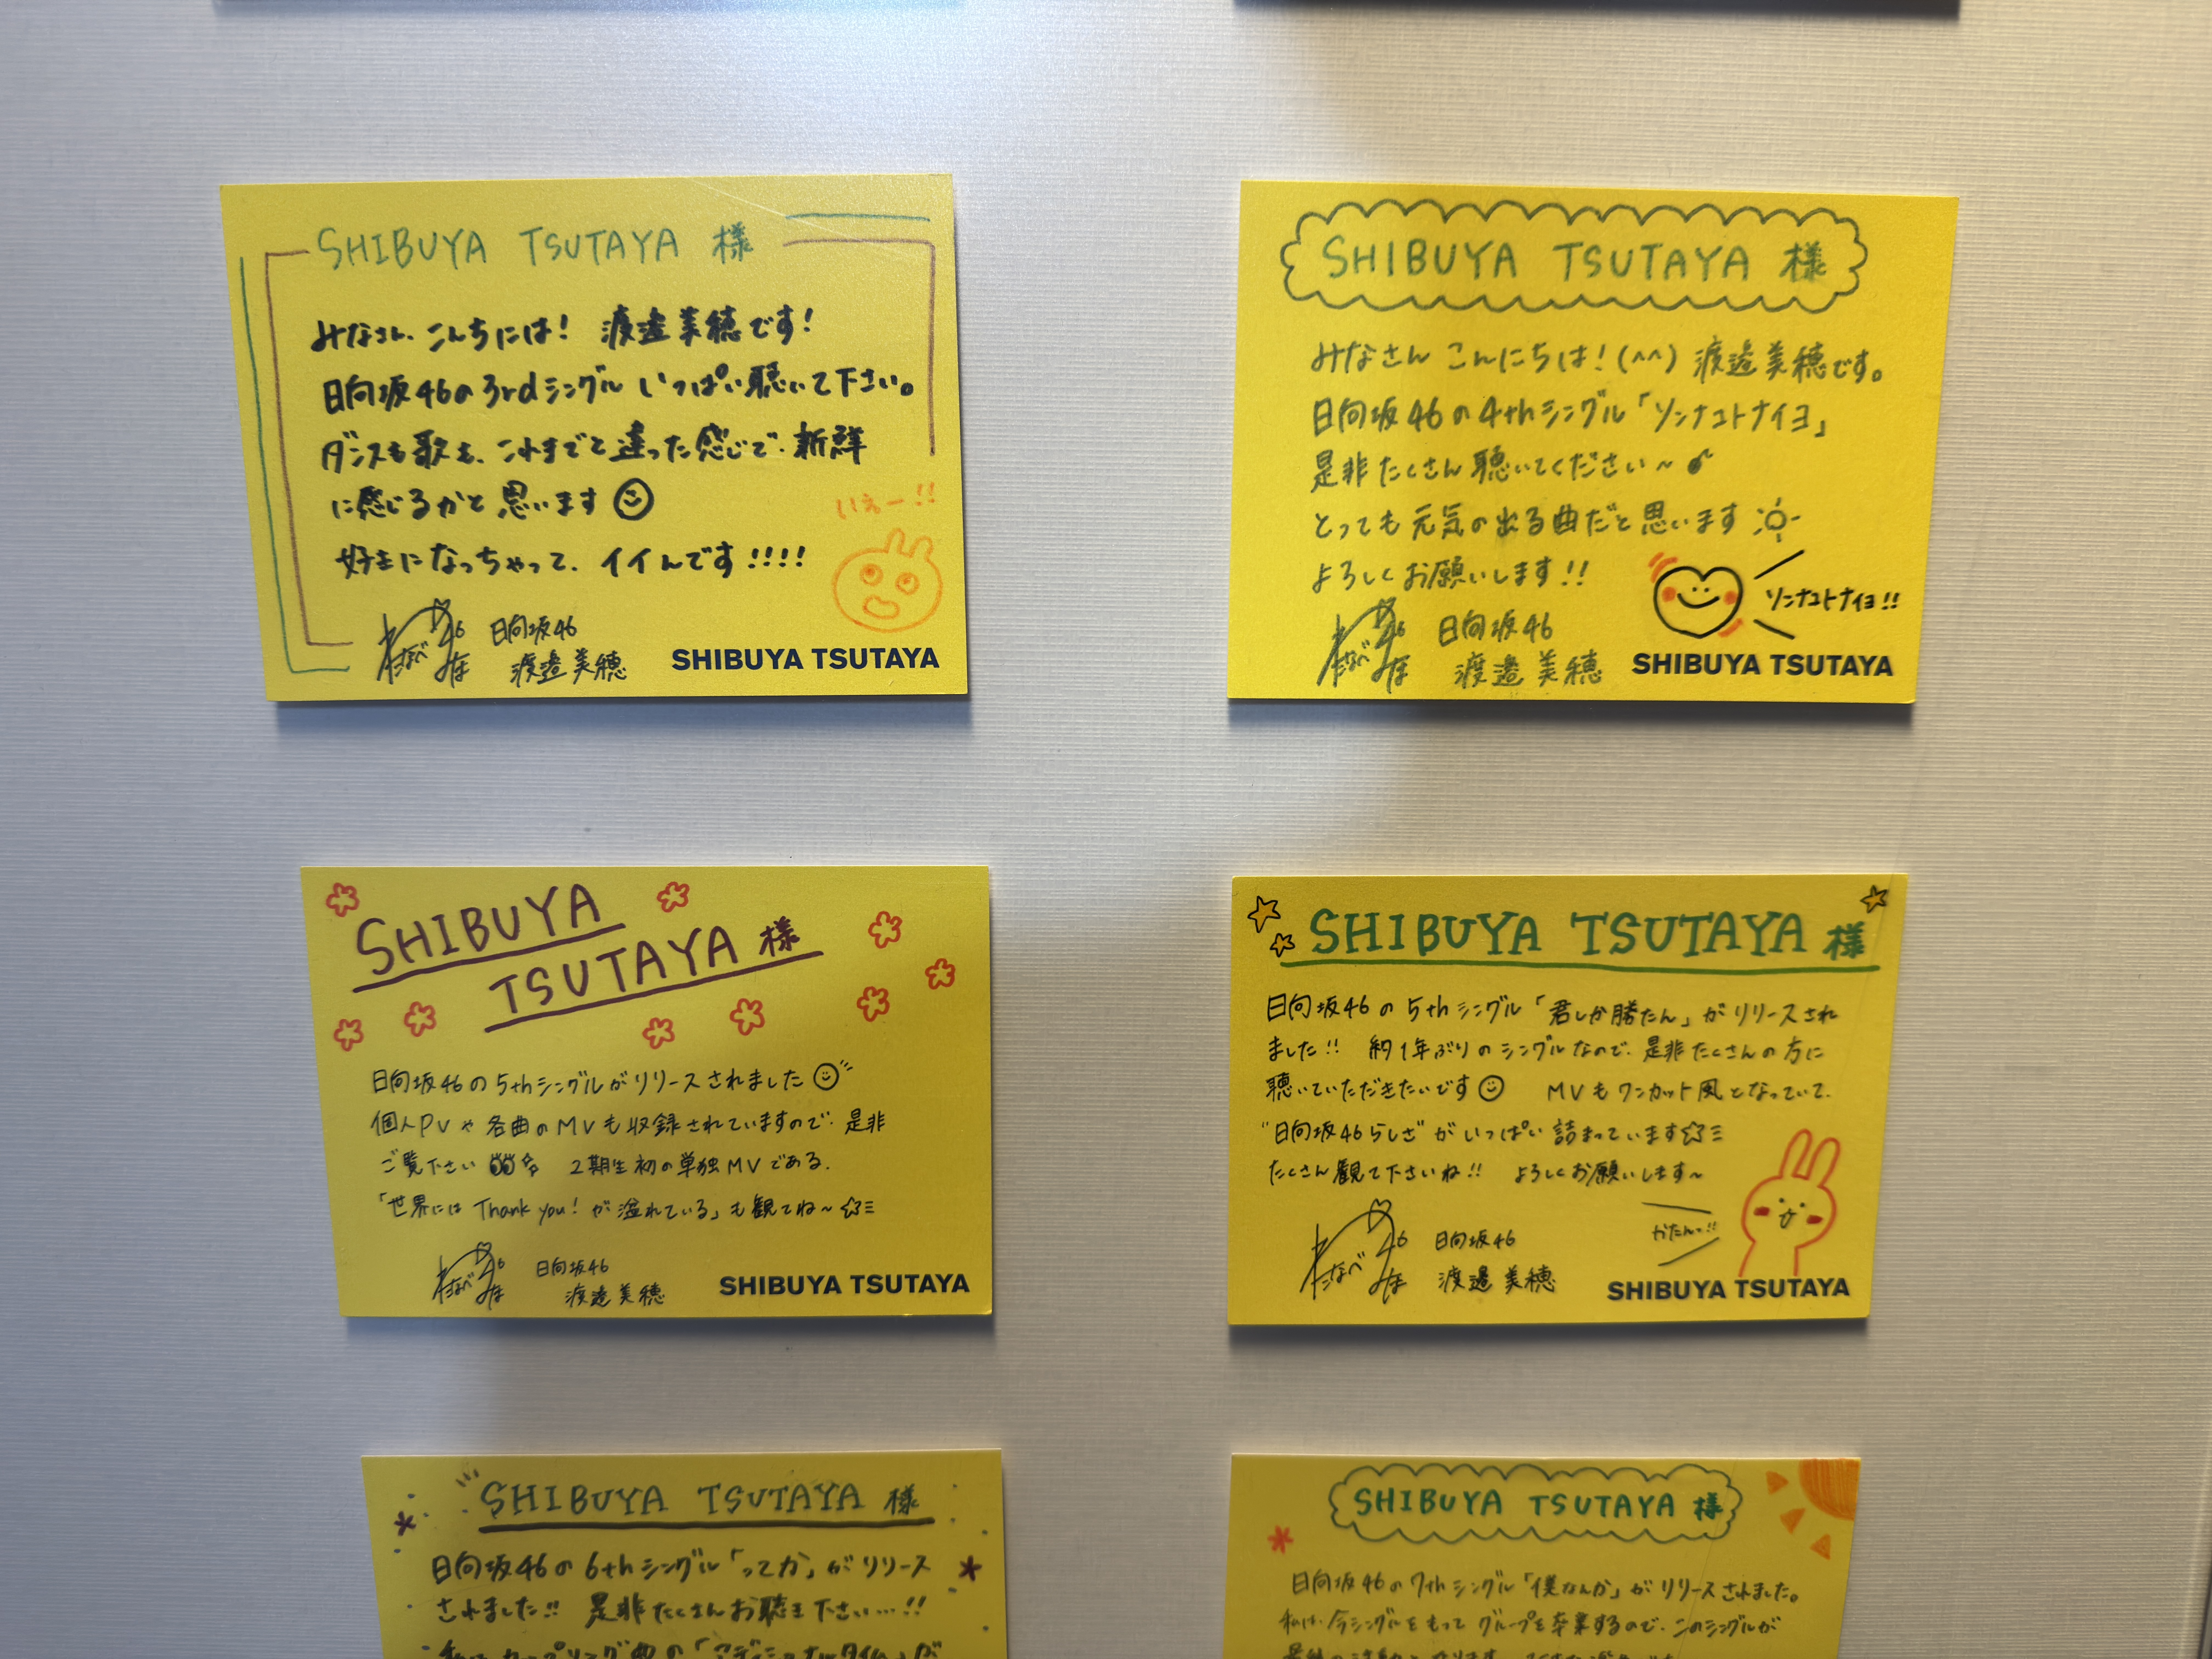 SHIBUYA TSUTAYA 様
みなさん、こんちには! 渡邉美穂です!
日向坂46の3rdシングル いっぱい聴いて下さい。
ダンスも歌も、これまでと違った感じで、新鮮
に感じるかと思います
好きになっちゃって、イイんです!!!!
いぇー!!
わたなべ みほ 46
日向坂46
渡邉美穂
SHIBUYA TSUTAYA
SHIBUYA TSUTAYA 様
みなさん こんにちは!(^^) 渡邉美穂です。
日向坂46の4thシングル「ソンナコトナイヨ」
是非たくさん聴いてください〜
とっても元気の出る曲だと思います
よろしくお願いします!!
ソンナコトナイヨ!!
わたなべ みほ 46
日向坂46
渡邉美穂
SHIBUYA TSUTAYA
SHIBUYA
TSUTAYA 様
日向坂46の5thシングルがリリースされました
個人PVや各曲のMVも収録されていますので、是非
ご覧下さい 2期生初の単独MVである、
「世界には Thank you! が溢れている」も観てね〜☆
わたなべ みほ 46
日向坂46
渡邉美穂
SHIBUYA TSUTAYA
SHIBUYA TSUTAYA 様
日向坂46の5thシングル「君しか勝たん」がリリースされ
ました!! 約1年ぶりのシングルなので、是非たくさんの方に
聴いていただきたいです MVもワンカット風となっていて、
"日向坂46らしさ"がいっぱい詰まっています☆
たくさん観て下さいね!! よろしくお願いします〜
かたんっ!!
わたなべ みほ 46
日向坂46
渡邉美穂
SHIBUYA TSUTAYA
SHIBUYA TSUTAYA 様
日向坂46の6thシングル「ってか」がリリース
されました!! 是非たくさんお聴き下さい…!!
カップリング曲の「アディショナルタイム」が
SHIBUYA TSUTAYA 様
日向坂46の7thシングル「僕なんか」がリリースされました。
私は、今シングルをもってグループを卒業するので、このシングルが